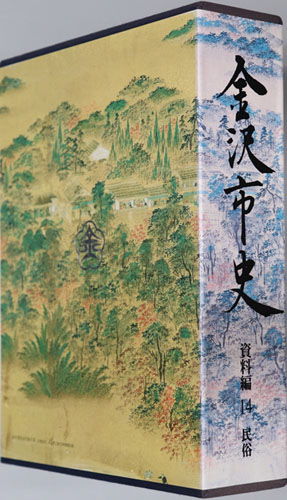 金沢市史
資料編 14 民俗